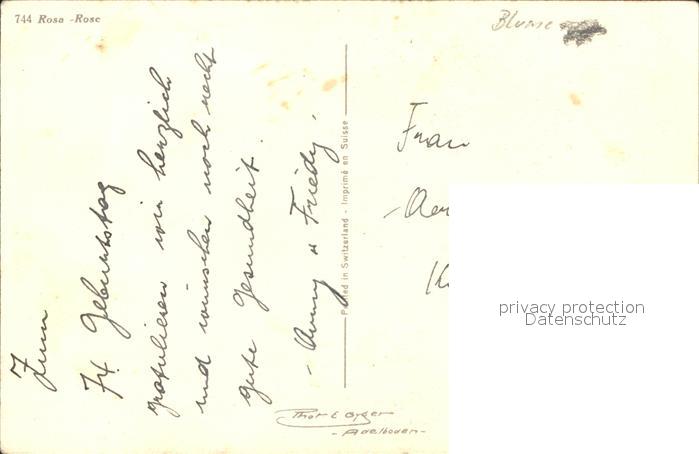 744 Rosa - Rose
Blume
Zum
74. Geburtstag
gratulieren wir herzlich
und wünschen noch recht
gute Gesundheit.
- Anny u Friedy.
Printed in Switzerland - Imprimé en Suisse
Frau
privacy protection
Datenschutz
Phot E Gyger
- Adelboden -